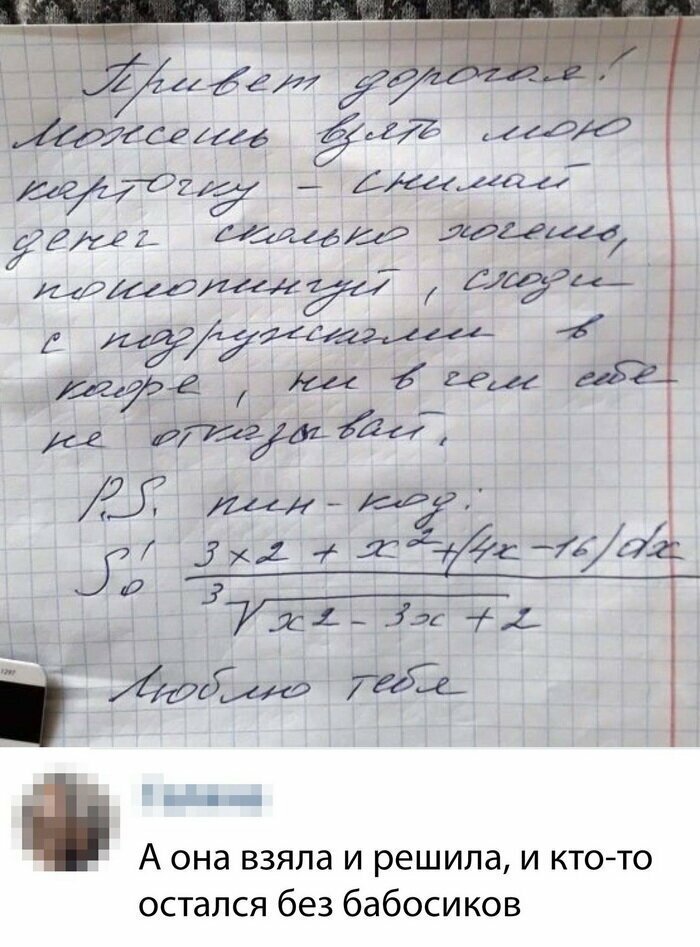 Привет дорогая!
Можешь взять мою
карточку – снимай
денег сколько хочешь,
пошопингуй, сходи
с подружками в
кафе, ни в чем себе
не отказывай.
P.S. пин-код:
∫₀¹ 3x2 + x² + (4x – 16) dx
∛x2 – 3x + 2
Люблю тебя
А она взяла и решила, и кто-то
остался без бабосиков